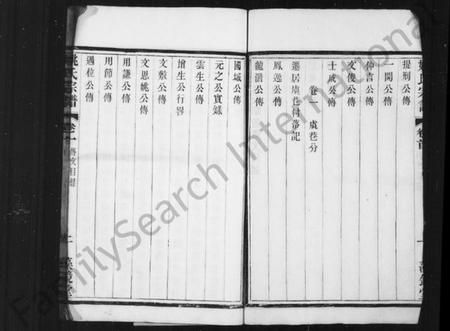 提刑公傳
一閣公傳
仲言公傳
文俊公傳
士咸公傳
卷一 虞巷分
遷居虞巷付蕃記
鳳邊公傳
龍涓公傳
國域公傳
元之公實錄
雲生公傳
增生公行畧
文敷公傳
文思姚公傳
用謙公傳
用節公傳
邁位公傳
姚氏宗譜
卷首
卷一
二
FamilySearch International